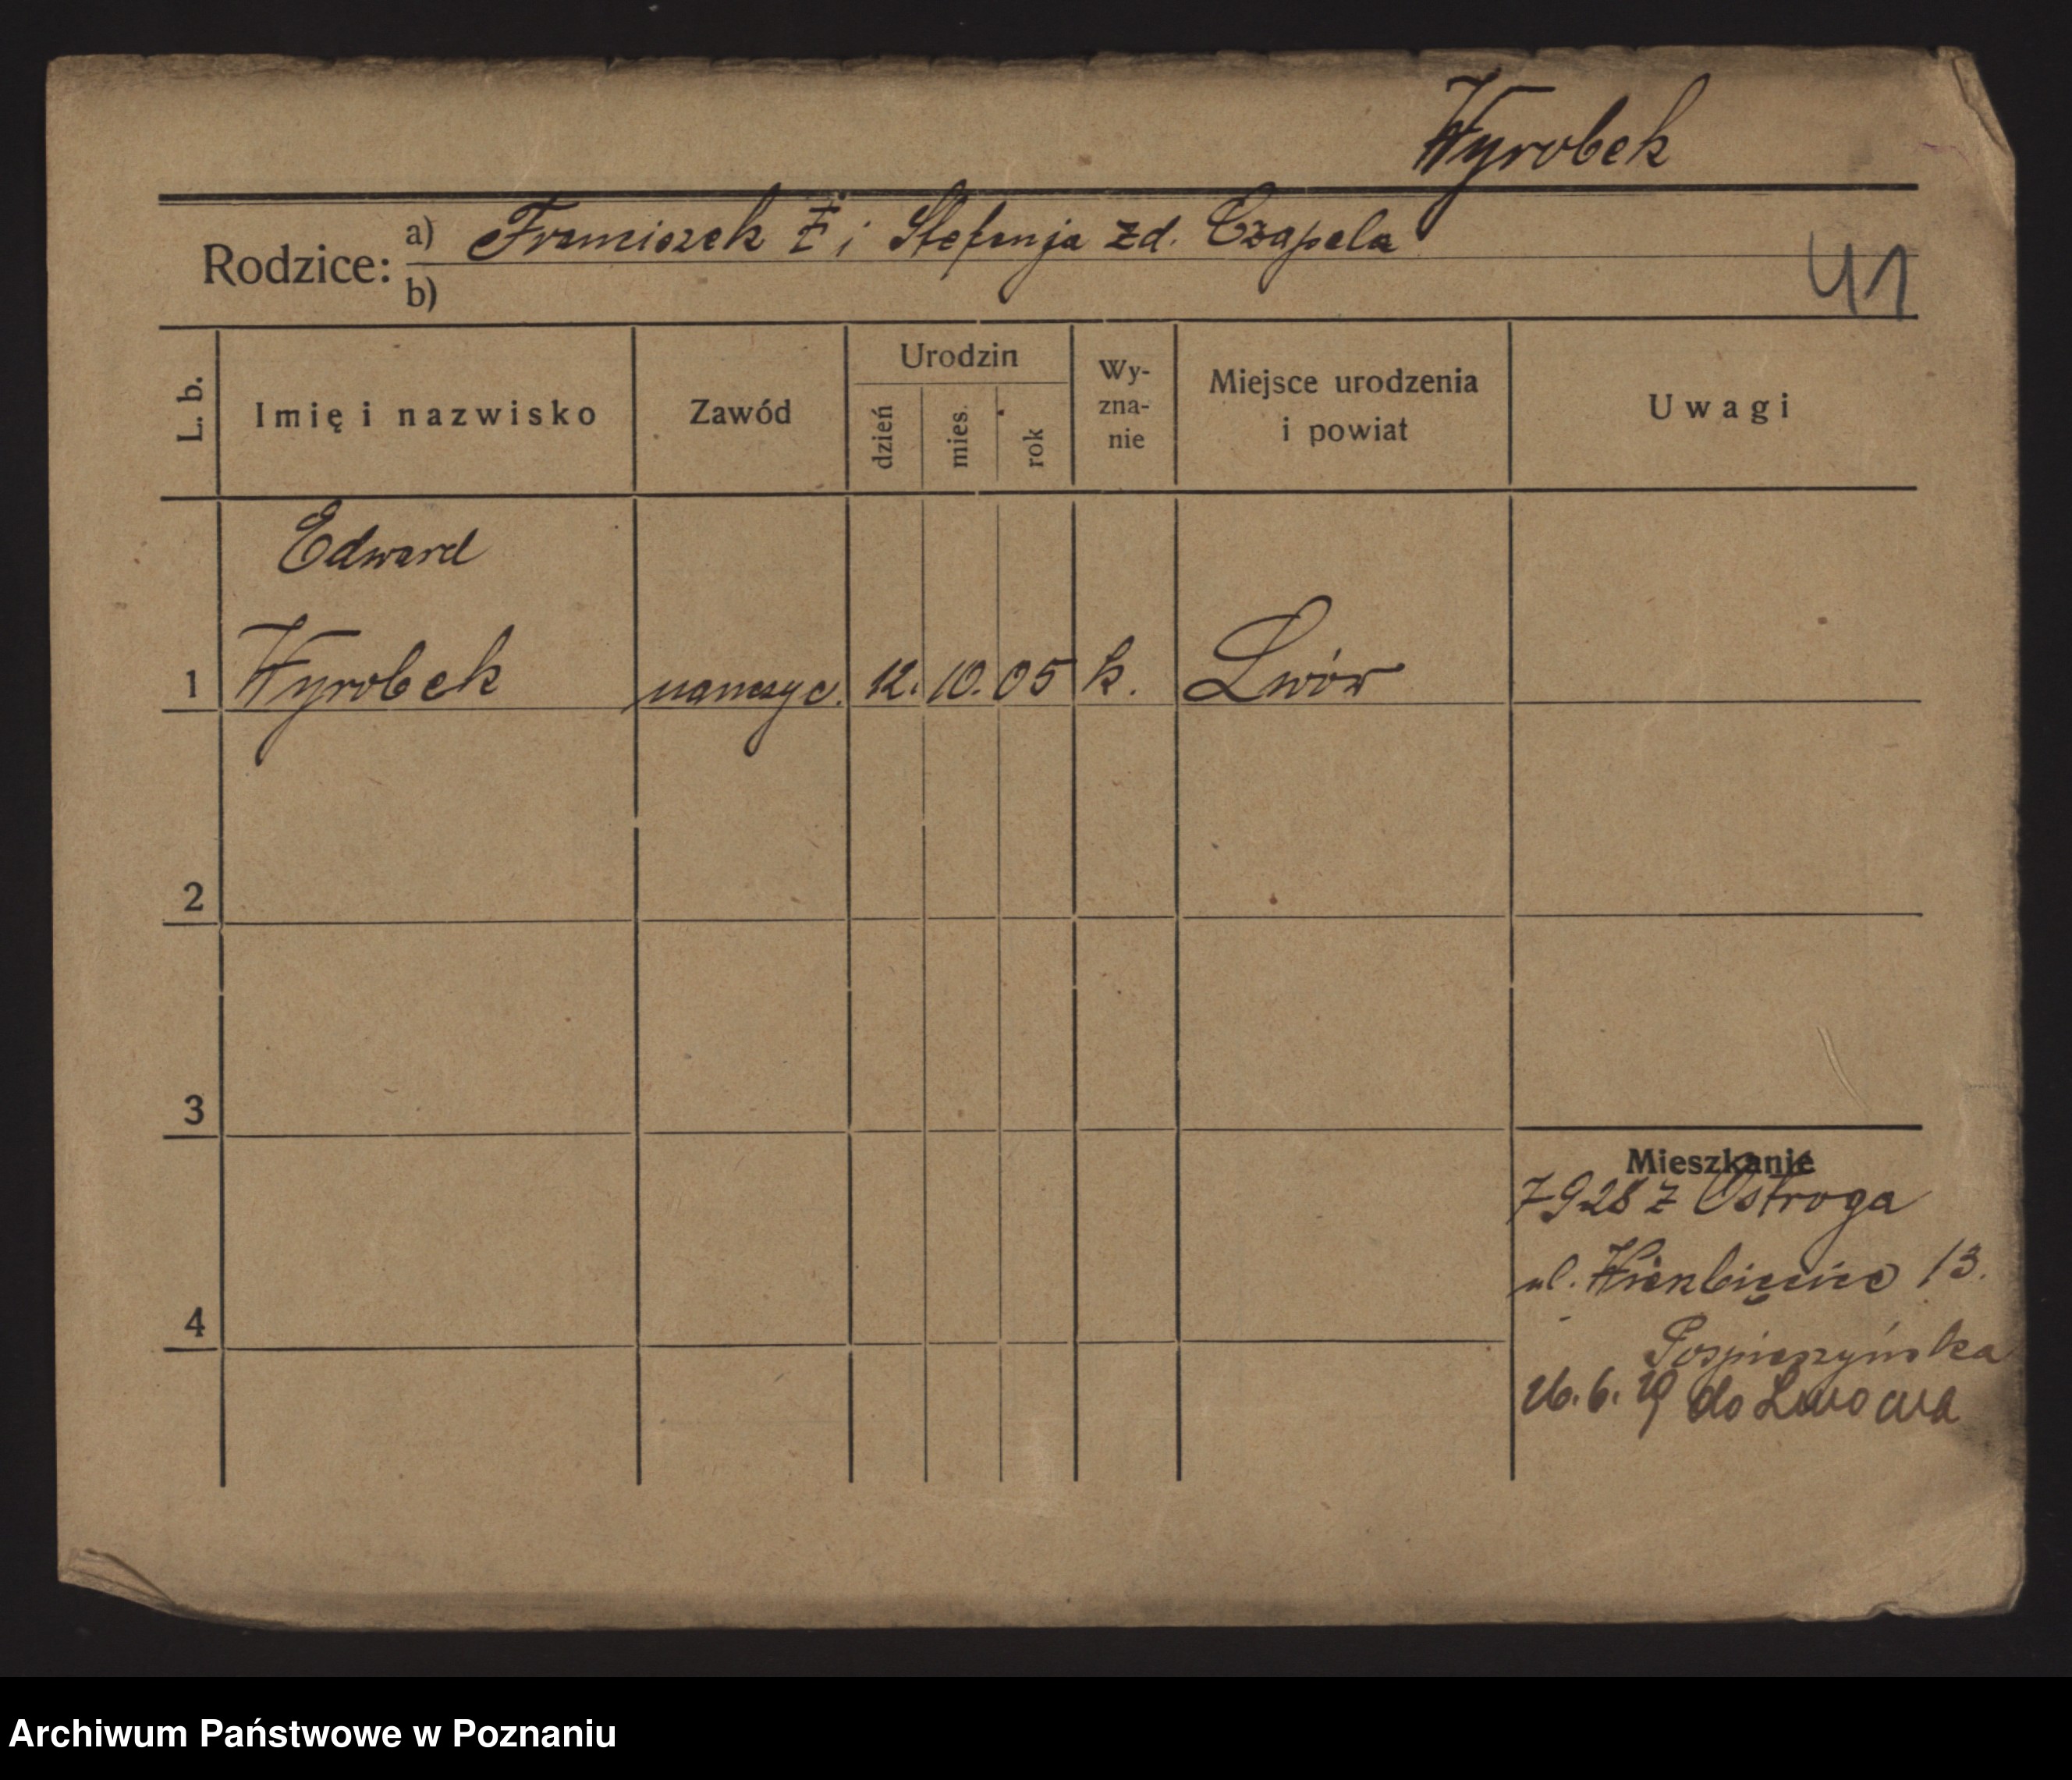 Wyrobek
Rodzice: a) Franciszek Ż i Stefanja zd. Czapela
b)
41
L. b.
Imię i nazwisko
Zawód
Urodzin
dzień
mies.
rok
Wy-
zna-
nie
Miejsce urodzenia
i powiat
Uwagi
Edward
1 Wyrobek nauczyc. 12. 10. 05 k. Lwów
2
3
4
Mieszkanie
7928 z Ostroga
ul. Wierzbięcice 13.
Pospieszyńska
26. 6. 29 do Lwowa
Archiwum Państwowe w Poznaniu